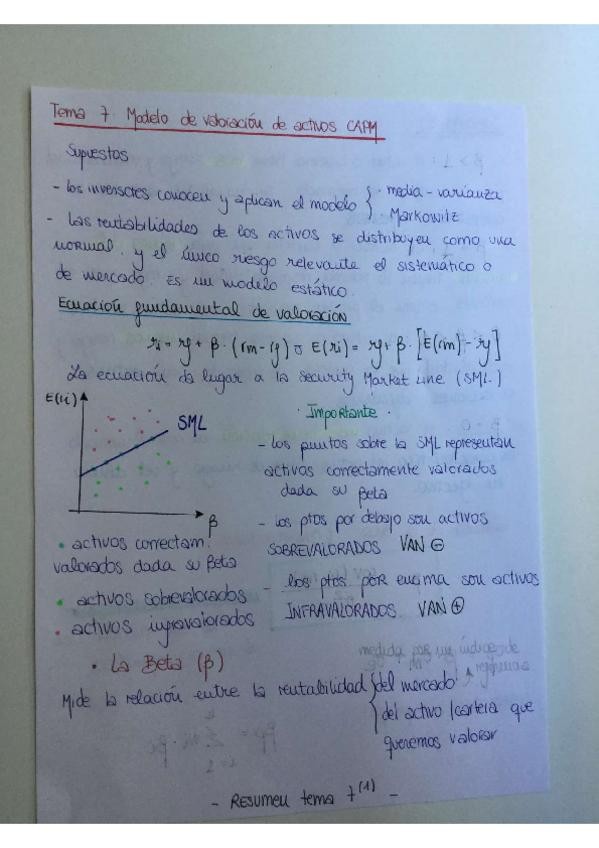 Tema 7. Modelo de valoración de activos CAPM
Supuestos
- los inversores conocen y aplican el modelo { · media-varianza
· Markowitz
- Las rentabilidades de los activos se distribuyen como una
normal, y el único riesgo relevante el sistemático o
de mercado. Es un modelo estático.
Ecuación fundamental de valoración
ri = rf + β · (rm - rf) o E(ri) = rf + β · [E(rm) - rf]
La ecuación da lugar a la Security Market Line (SML)
E(ri)
SML
β
· activos correctam.
valorados dada su Beta
· activos sobrevalorados
· activos infravalorados
· Importante ·
- los puntos sobre la SML representan
activos correctamente valorados
dada su Beta
- los ptos por debajo son activos
SOBREVALORADOS VAN ⊖
- los ptos por encima son activos
INFRAVALORADOS VAN ⊕
· La Beta (β)
medida por un índice de
referencia
Mide la relación entre la rentabilidad { del mercado
del activo/cartera que
queremos valorar
- RESUMEN tema 7 (1) -